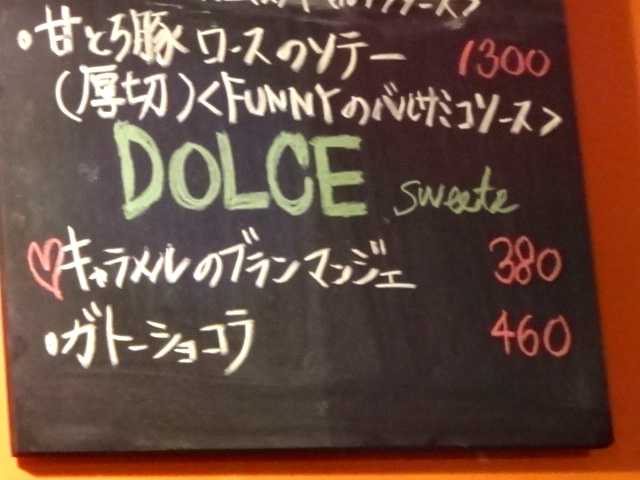 ・甘とろ豚ロースのソテー 1300
(厚切)<FUNNYのバルサミコソース>
DOLCE sweets
♡キャラメルのブランマンジェ 380
・ガトーショコラ 460